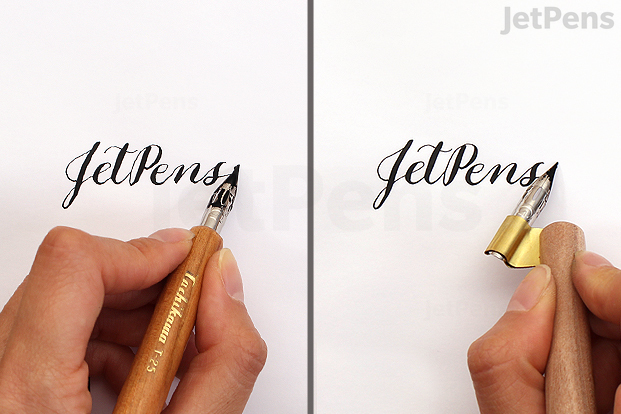 JetPens
JetPens
JetPens
JetPens
JetPens
JetPens
JetPens
Tachikawa T-25
JetPens